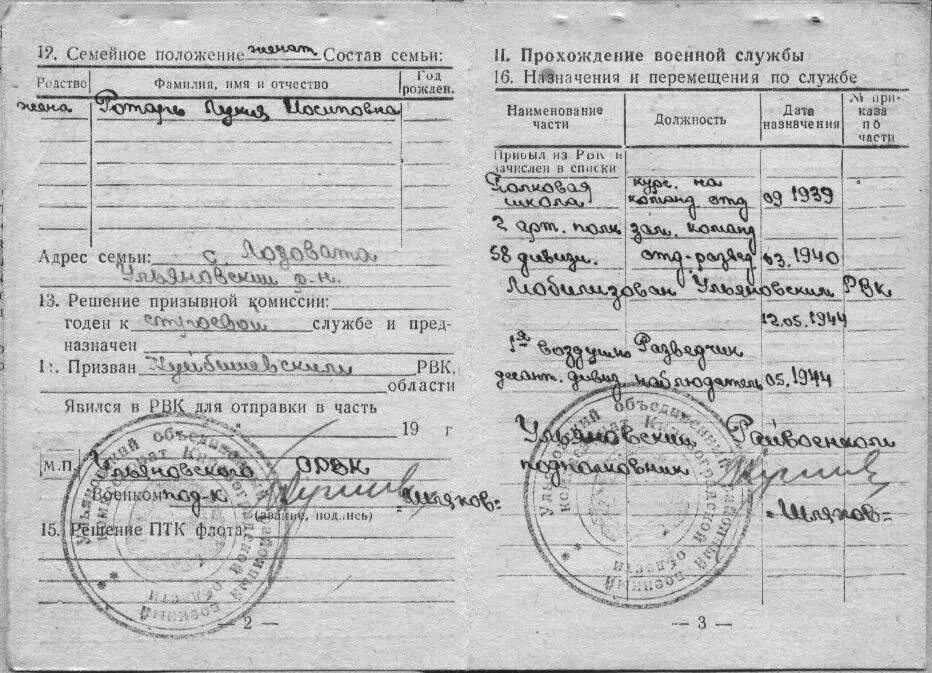 12. Семейное положение женат Состав семьи:
Родство Фамилия, имя и отчество Год рожден.
жена Ротарь Лидия Иосиповна
Адрес семьи: с. Лозовата
Ульяновский р-н.
13. Решение призывной комиссии:
годен к строевой службе и пред-
назначен
14. Призван Куйбышевским РВК,
области
Явился в РВК для отправки в часть
19 г
М.П. Ульяновского ОРВК
Военком под-к Шляхов
(звание, подпись)
15. Решение ПТК флота
— 2 —
Ульяновский объединенный районный военный комиссариат Кировоградской области
II. Прохождение военной службы
16. Назначения и перемещения по службе
Наименование части Должность Дата назначения № приказа по части
Прибыл из РВК и
зачислен в списки
Полковая курс. на
школа команд отд 09 1939
2 арт. полк зам. команд
58 дивизи. отд-развед 03. 1940
Мобилизован Ульяновским РВК
12.05.1944
1я воздушно Разведчик
десант. дивиз наблюдатель 05.1944
Ульяновский Райвоенком
подполковник
=Шляхов=
— 3 —
Ульяновский объединенный районный военный комиссариат Кировоградской области